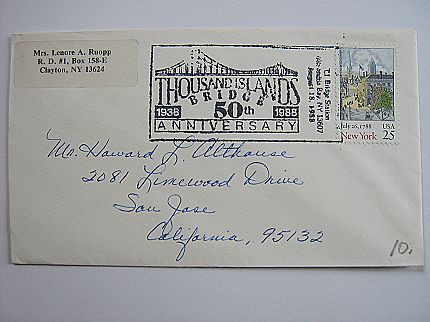 Mrs. Lenore A. Ruopp
R. D. #1, Box 158-E
Clayton, NY 13624
THOUSAND ISLANDS
BRIDGE
1938 50th 1988
ANNIVERSARY
T.I. Bridge Station
Alexandria Bay, NY 13607
August 18, 1988
July 26, 1788 USA
New York 25
Mr. Howard L. Althouse
2081 Limewood Drive
San Jose
California, 95132
10.